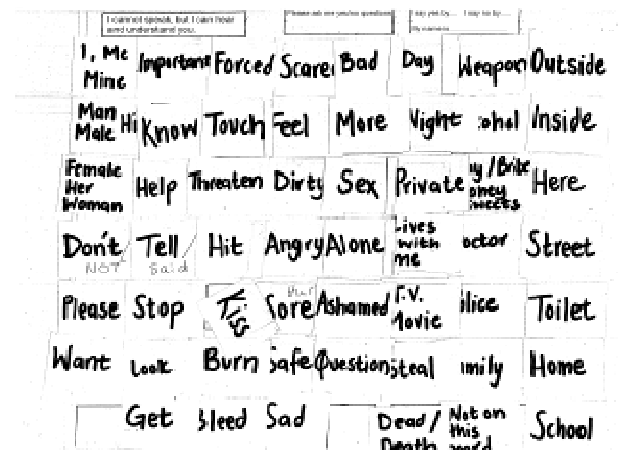 I cannot speak, but I can hear
and understand you.
Please ask me you're questions
I say yes by.... I say no by....
My name is
I, Me Mine Important Forced Scare Bad Day Weapon Outside
Man Male Hi Know Touch Feel More Night ohol Inside
Female Her Woman Help Threaten Dirty Sex Private y/Bribe oney weets Here
Don't / NOT Tell / Said Hit Angry Alone Lives with me octor Street
Please Stop Kiss Sore Hurt Ashamed T.V. Movie olice Toilet
Want Look Burn Safe Question Steal amily Home
Get Bleed Sad Dead / Death Not on this School